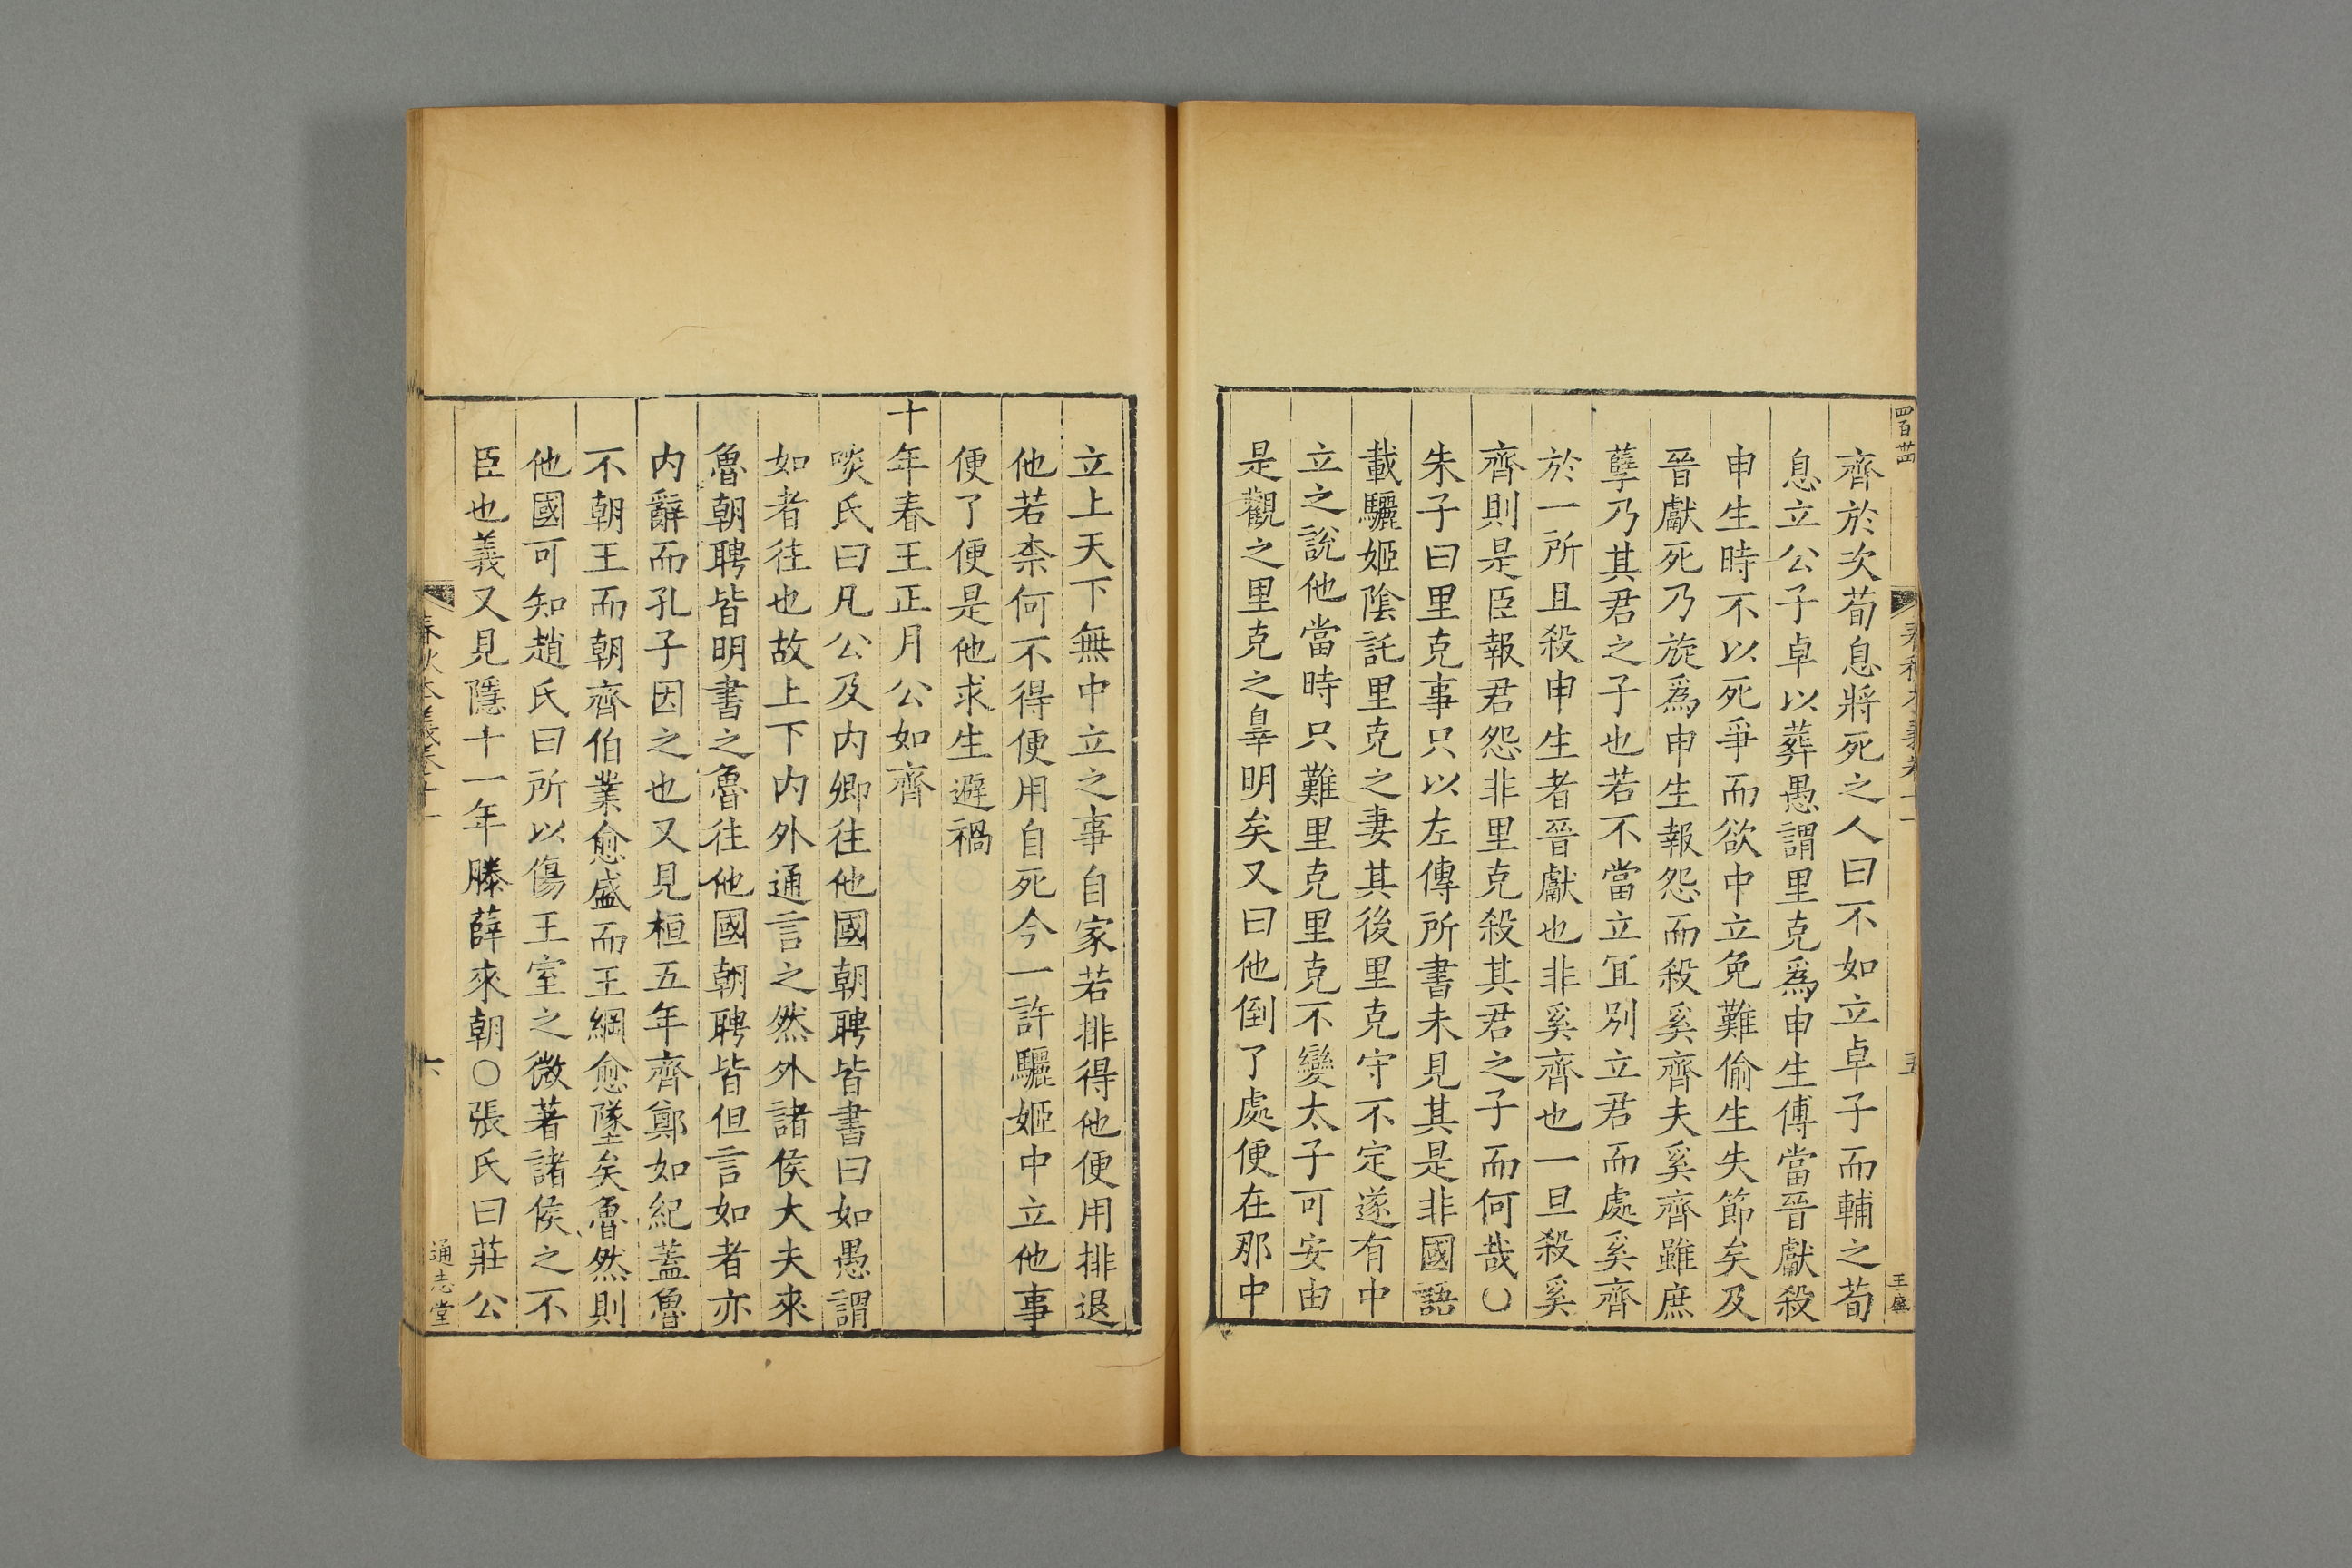 齊於次荀息將死之人曰不如立卓子而輔之荀
息立公子卓以葬愚謂里克爲申生傅當晉獻殺
申生時不以死爭而欲中立免難偷生失節矣及
晉獻死乃旋爲申生報怨而殺奚齊夫奚齊雖庶
孽乃其君之子也若不當立冝別立君而處奚齊
於一所且殺申生者晉獻也非奚齊也一旦殺奚
齊則是臣報君怨非里克殺其君之子而何哉○
朱子曰里克事只以左傳所書未見其是非國語
載驪姬陰託里克之妻其後里克守不定遂有中
立之說他當時只難里克里克不變太子可安由
是觀之里克之辠明矣又曰他倒了處便在那中
王盛
立上天下無中立之事自家若排得他便用排退
他若柰何不得便用自死今一許驪姬中立他事
便了便是他求生避禍
十年春王正月公如齊
啖氏曰凡公及内卿往他國朝聘皆書曰如愚謂
如者往也故上下内外通言之然外諸侯大夫來
魯朝聘皆明書之魯往他國朝聘皆但言如者亦
内辭而孔子因之也又見桓五年齊鄭如紀蓋魯
不朝王而朝齊伯業愈盛而王綱愈墜矣魯然則
他國可知趙氏曰所以傷王室之微著諸侯之不
臣也義又見隱十一年滕薛來朝○張氏曰莊公
春秋本義卷十一
六
通志堂